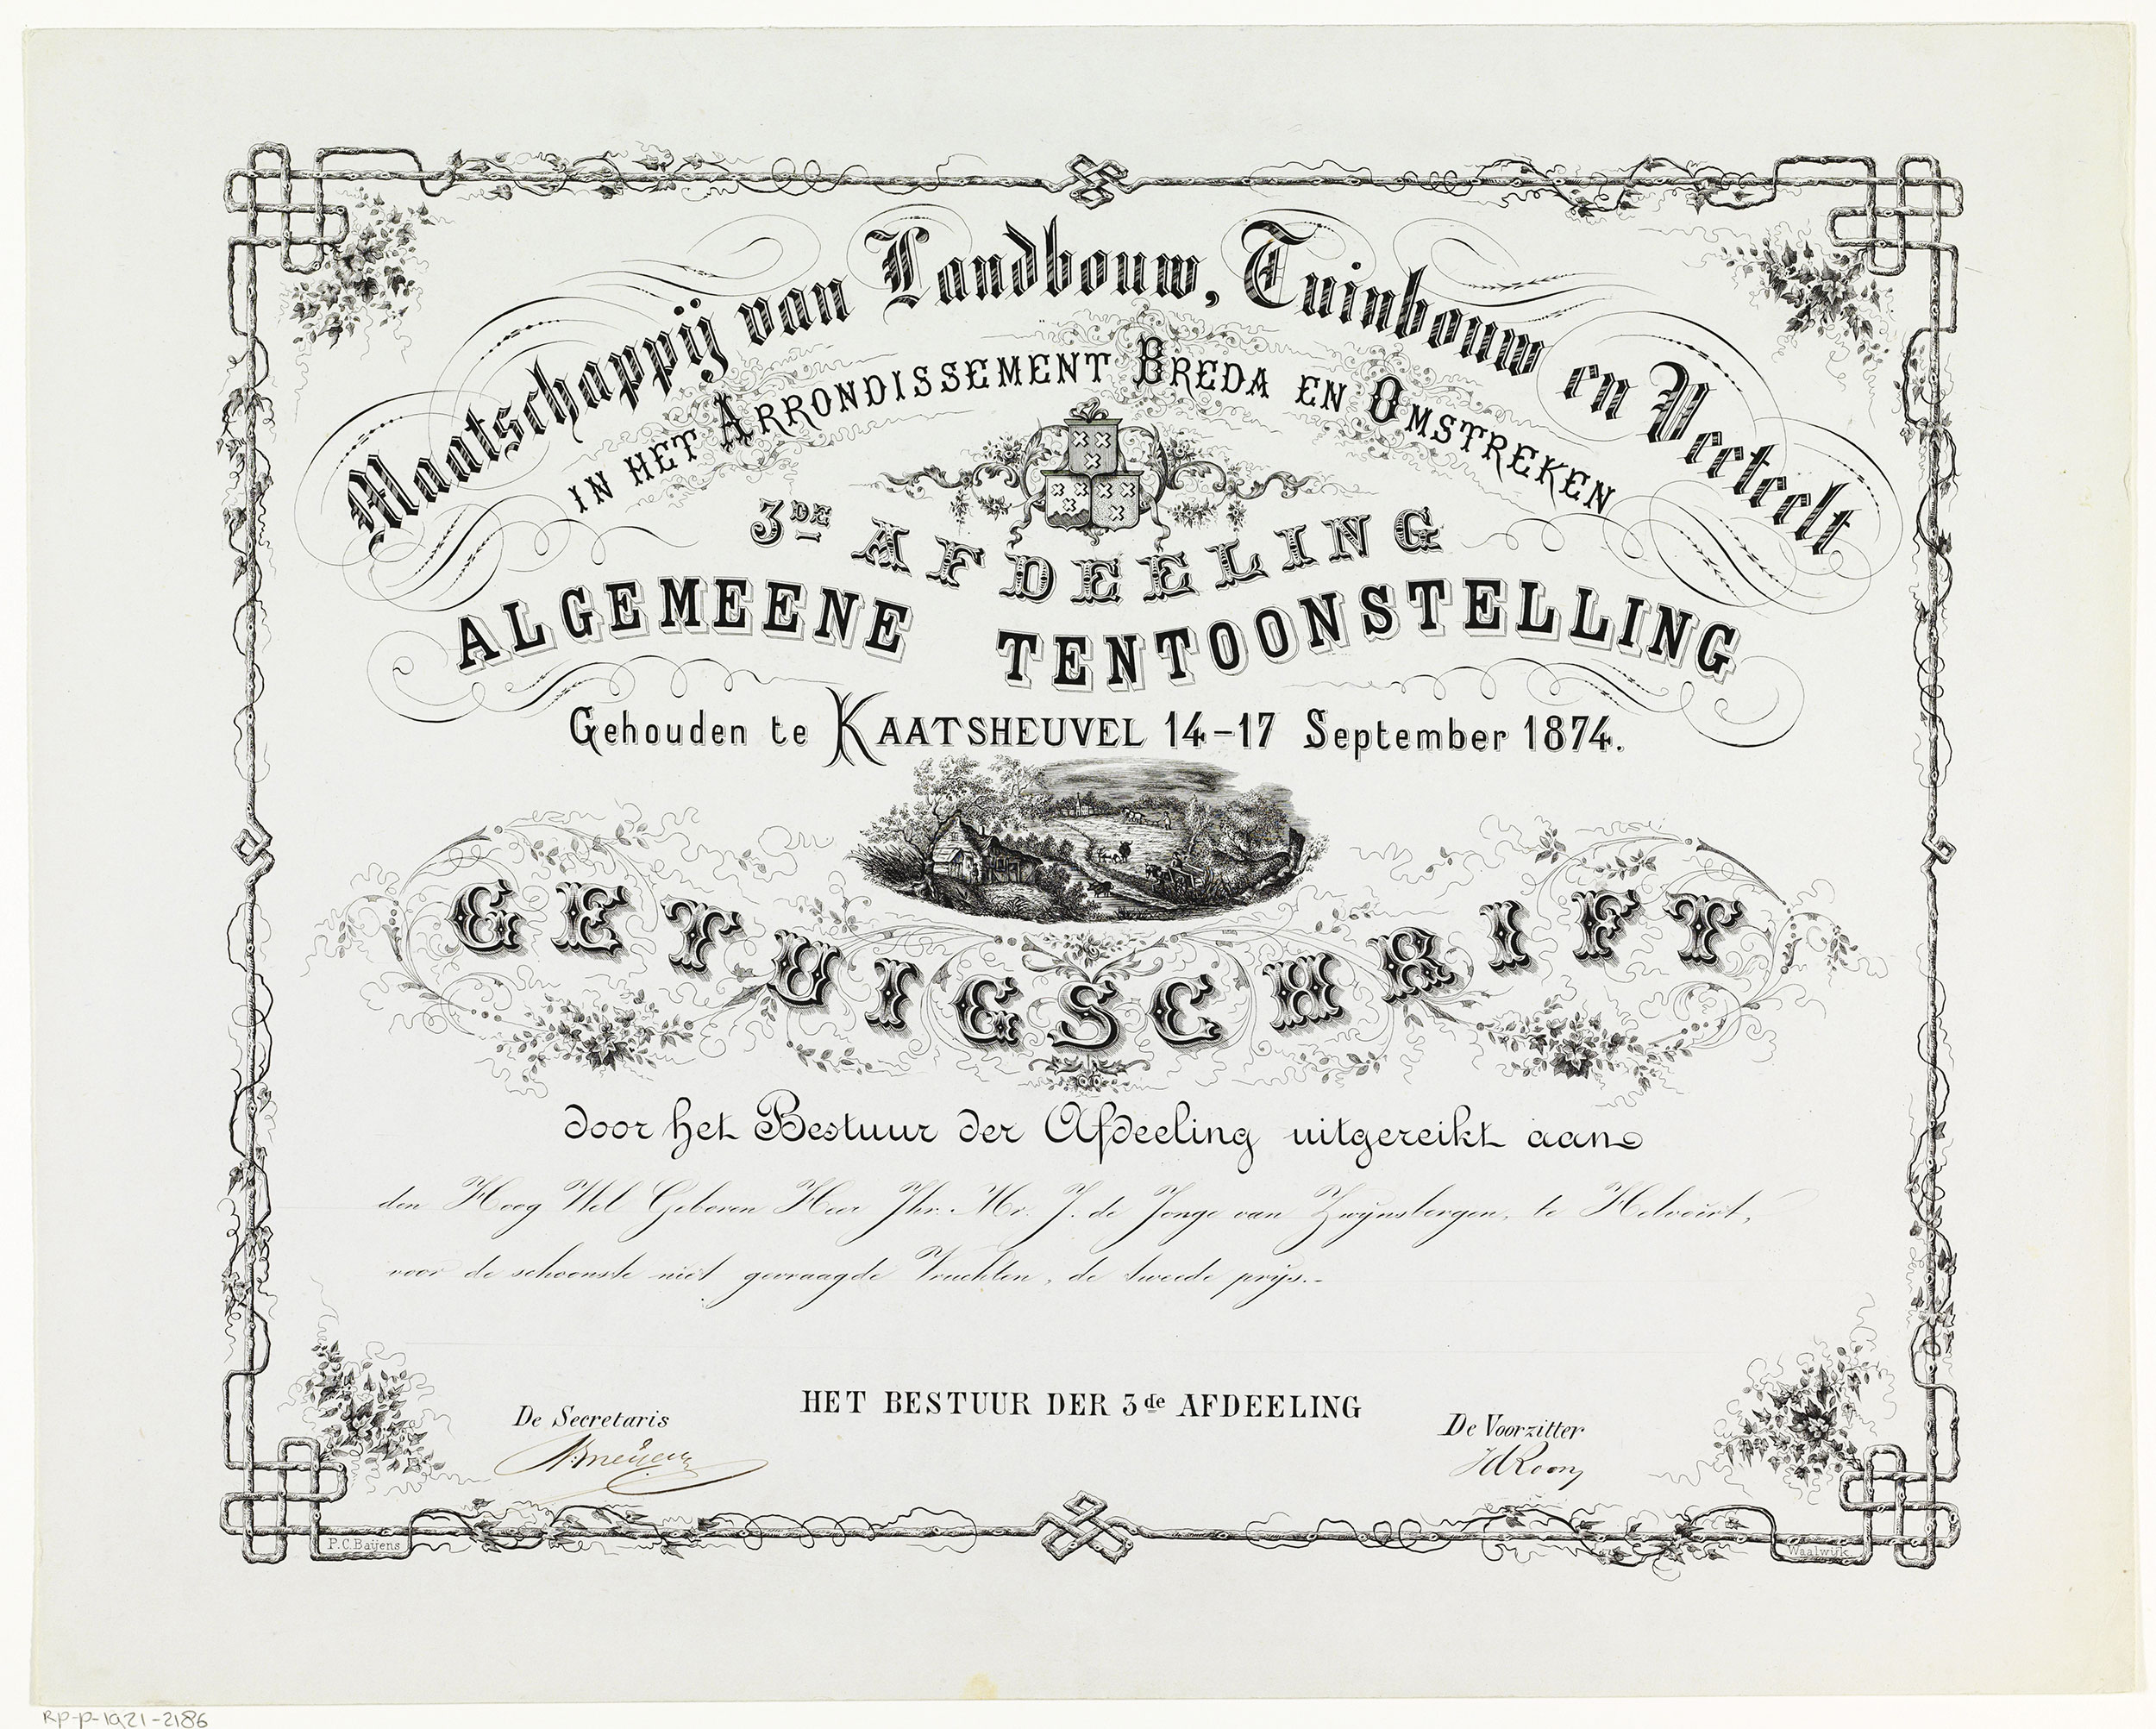 Maatschappij van Landbouw, Tuinbouw en Veeteelt
IN HET ARRONDISSEMENT BREDA EN OMSTREKEN
3DE AFDEELING
ALGEMEENE TENTOONSTELLING
Gehouden te KAATSHEUVEL 14-17 September 1874.
GETUIGSCHRIFT
door het Bestuur der Afdeeling uitgereikt aan
den Hoog Wel Geboren Heer Jhr. Mr. J. de Jonge van Zwijnsbergen, te Helvoirt,
voor de schoonste niet gevraagde Vruchten, de tweede prijs.-
HET BESTUUR DER 3de AFDEELING
De Secretaris
De Voorzitter
P.C. Baijens
Waalwijk
RP-P-1921-2186